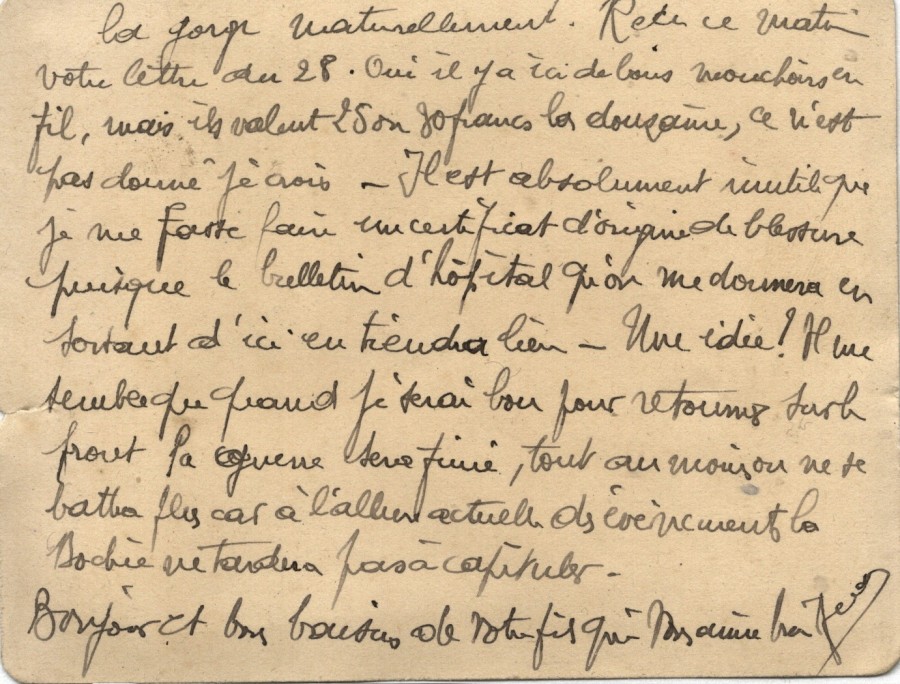 la gorge naturellement. Reçu ce matin
votre lettre du 28. Oui il y a ici de bons mouchoirs en
fil, mais ils valent 25 ou 30 francs la douzaine, ce n'est
pas donné je crois – Il est absolument inutile que
je me fasse faire un certificat d'origine de blessure
puisque le bulletin d'hôpital qu'on me donnera en
sortant d'ici en tiendra lieu – Une idée! Il me
semble que quand je serai bon pour retourner sur le
front la guerre sera finie, tout au moins on ne se
battra plus car à l'allure actuelle des évènements la
Bochie ne tardera pas à capituler –
Bonjour et bons baisers de votre fils qui vous aime bien